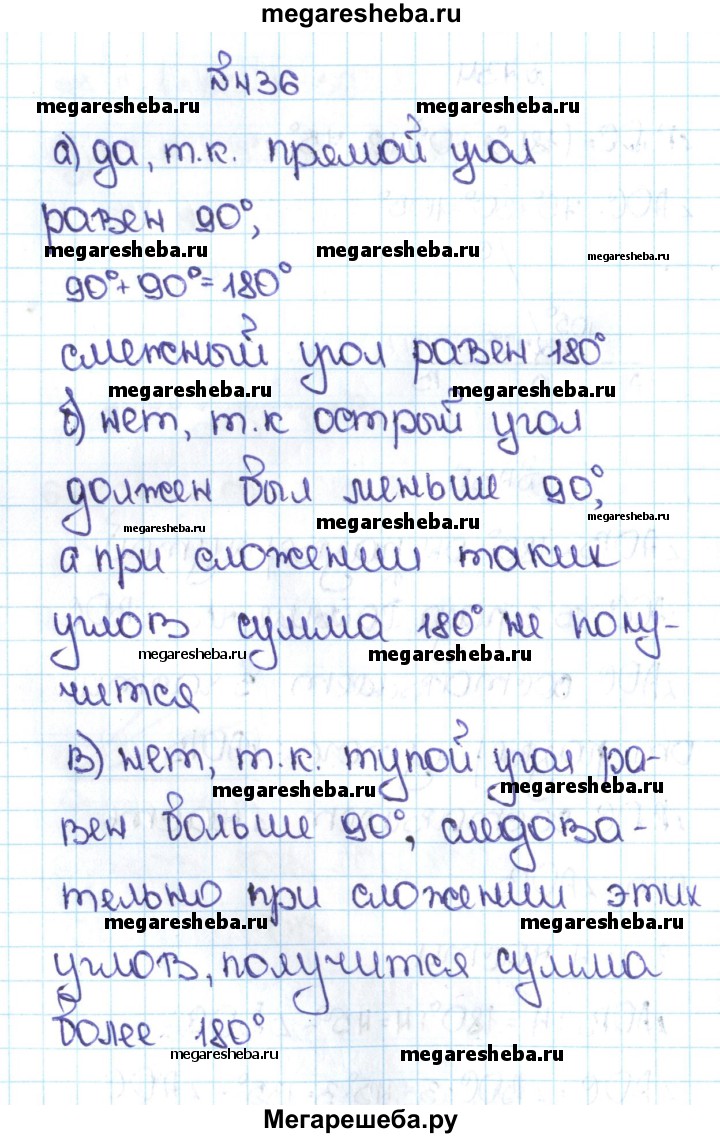 megaresheba.ru
№436
megaresheba.ru megaresheba.ru
а) да, т.к. прямой угол
равен 90°,
megaresheba.ru megaresheba.ru megaresheba.ru
90°+90°=180°
смежный угол равен 180°
megaresheba.ru megaresheba.ru
б) нет, т.к острый угол
должен был меньше 90°,
megaresheba.ru megaresheba.ru
а при сложении таких
углов сумма 180° не полу-
megaresheba.ru megaresheba.ru
чится
в) нет, т.к. тупой угол ра-
megaresheba.ru megaresheba.ru
вен больше 90°, следова-
тельно при сложении этих
megaresheba.ru megaresheba.ru
углов, получится сумма
более 180°
megaresheba.ru megaresheba.ru
Мегарешеба.ру